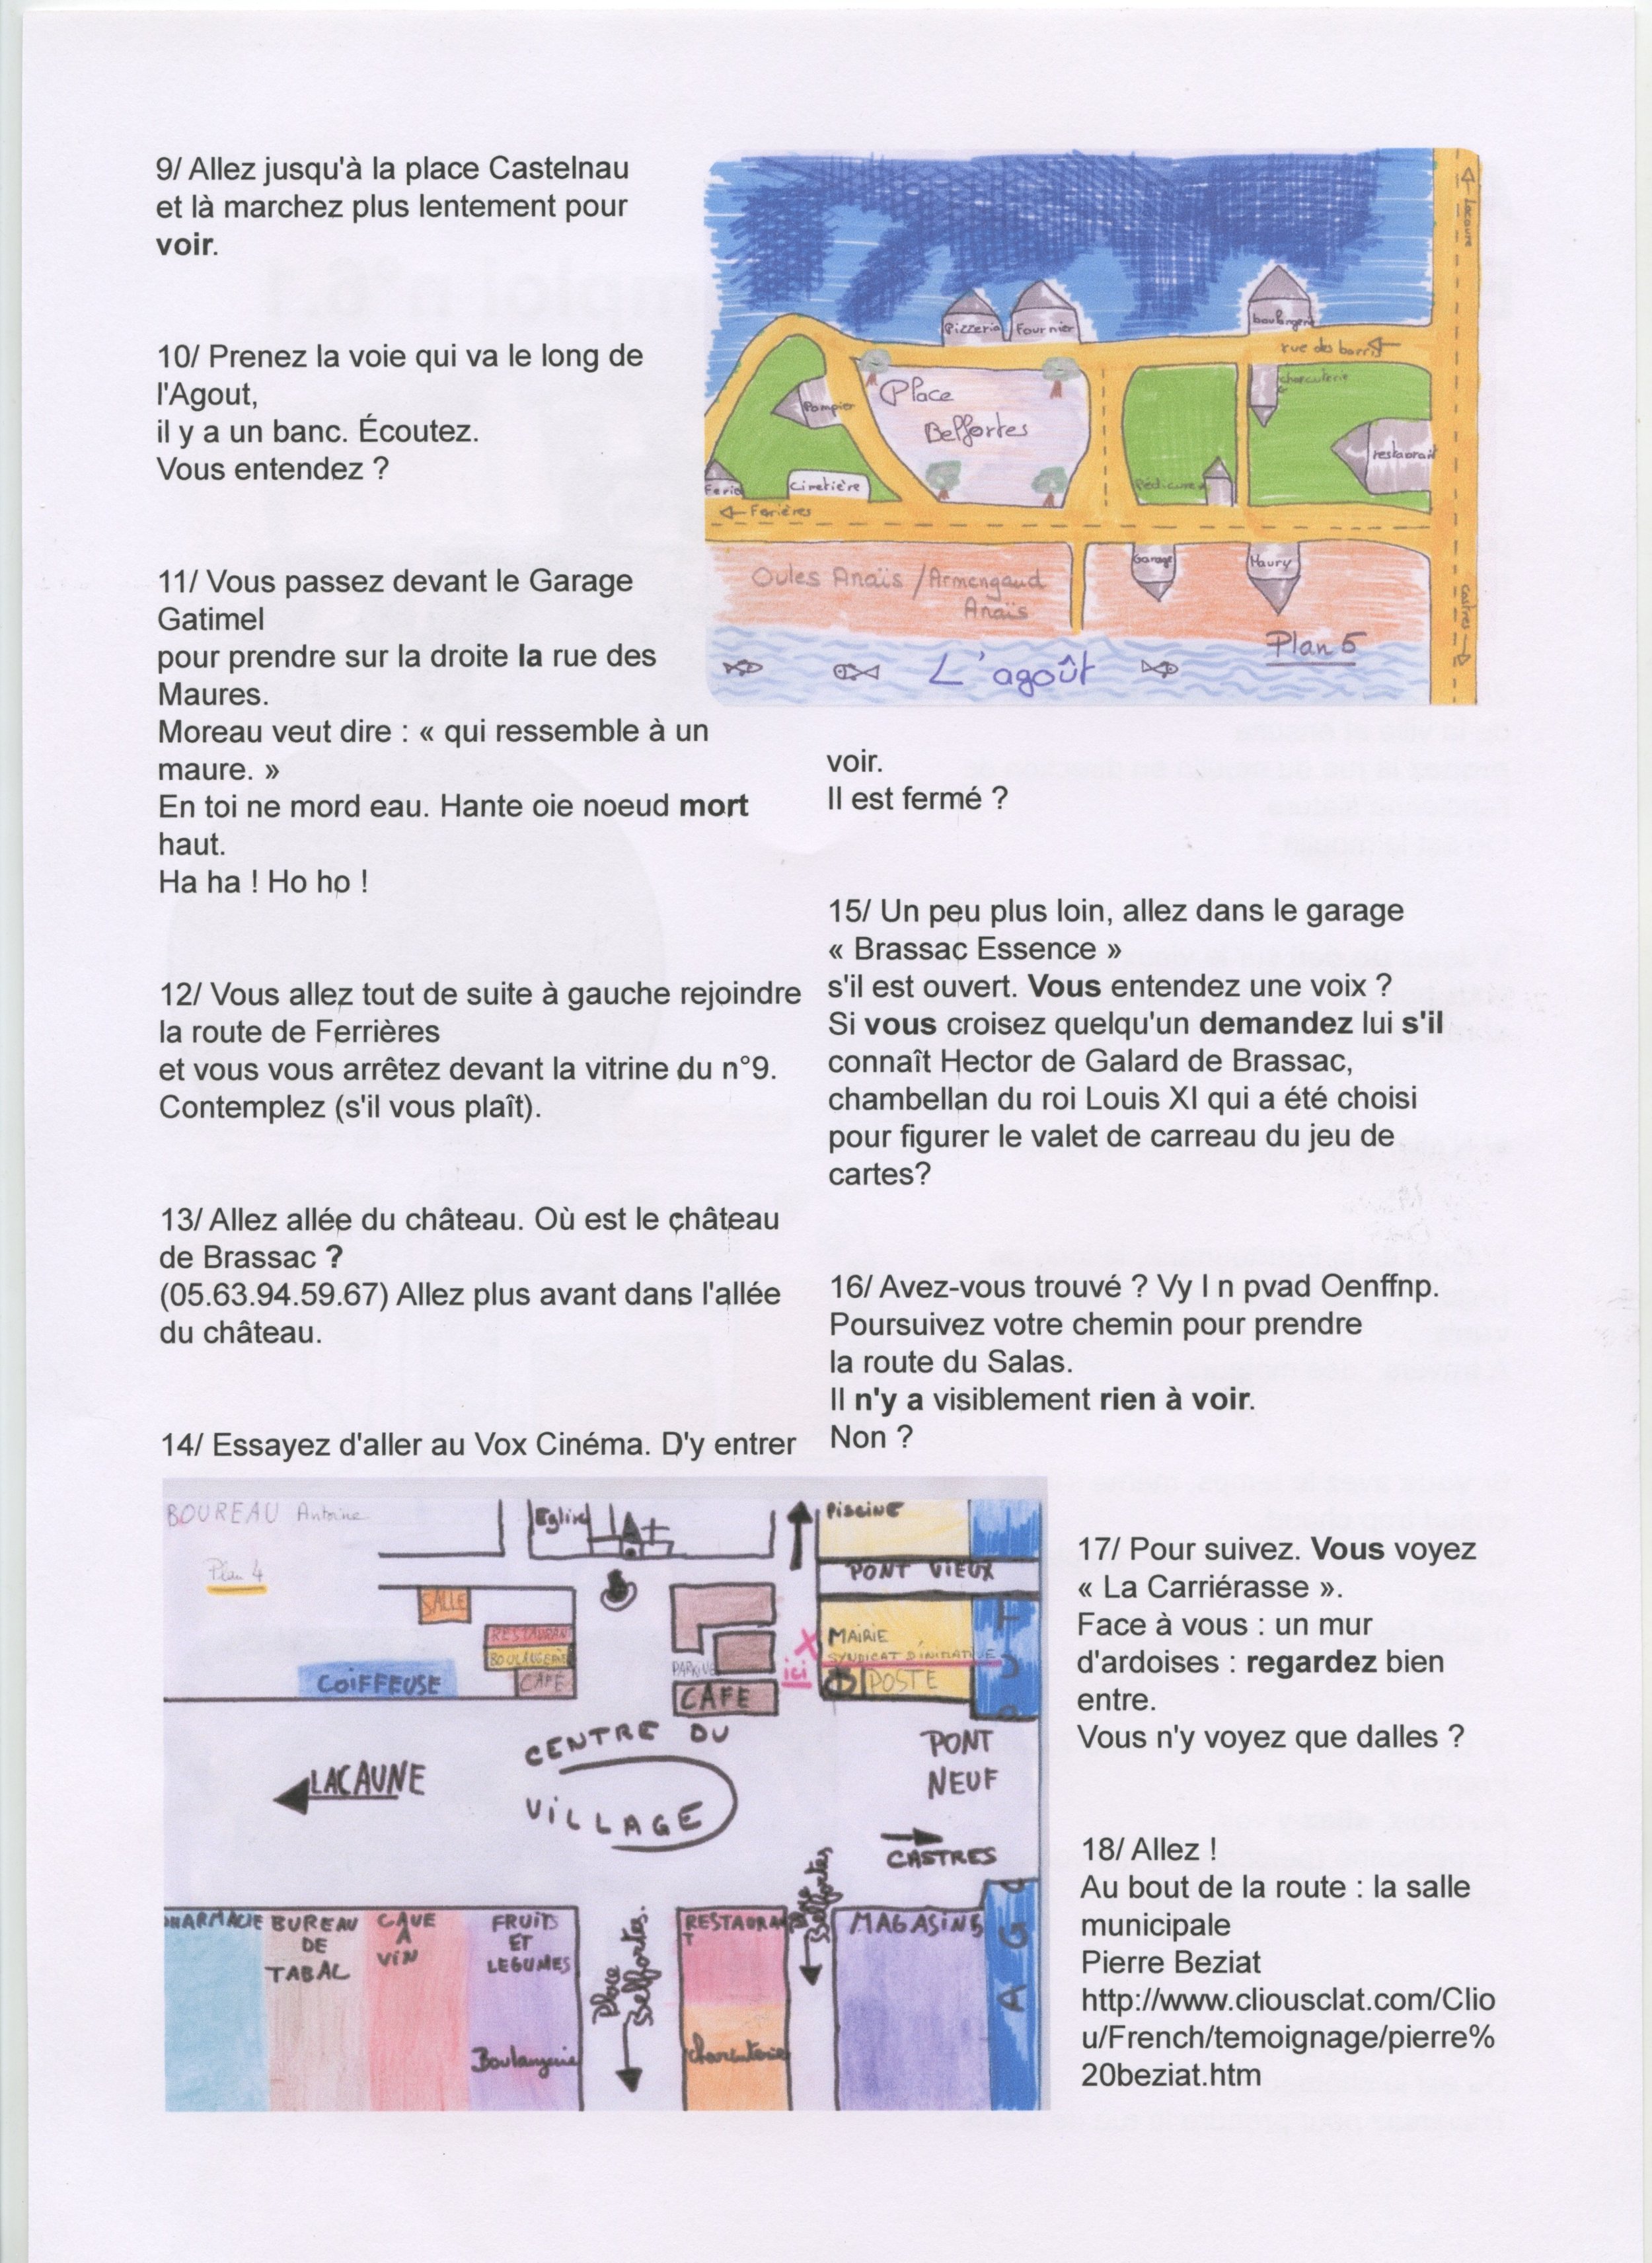 9/ Allez jusqu'à la place Castelnau
et là marchez plus lentement pour
voir.
10/ Prenez la voie qui va le long de
l'Agout,
il y a un banc. Écoutez.
Vous entendez ?
11/ Vous passez devant le Garage
Gatimel
pour prendre sur la droite la rue des
Maures.
Moreau veut dire : « qui ressemble à un
maure. »
En toi ne mord eau. Hante oie noeud mort
haut.
Ha ha ! Ho ho !
12/ Vous allez tout de suite à gauche rejoindre
la route de Ferrières
et vous vous arrêtez devant la vitrine du n°9.
Contemplez (s'il vous plaît).
13/ Allez allée du château. Où est le château
de Brassac ?
(05.63.94.59.67) Allez plus avant dans l'allée
du château.
14/ Essayez d'aller au Vox Cinéma. D'y entrer
Lacaune
Pizzeria
Fournier
boulangerie
rue des barris
charcuterie
Place
Belfortes
Pompier
restaurait
Ferie
Cimetière
Pédicure
Ferrières
Garage
Maury
Oules Anaïs / Armengaud
Anaïs
Castres
Plan 5
L'agoût
voir.
Il est fermé ?
15/ Un peu plus loin, allez dans le garage
« Brassac Essence »
s'il est ouvert. Vous entendez une voix ?
Si vous croisez quelqu'un demandez lui s'il
connaît Hector de Galard de Brassac,
chambellan du roi Louis XI qui a été choisi
pour figurer le valet de carreau du jeu de
cartes?
16/ Avez-vous trouvé ? Vy l n pvad Oenffnp.
Poursuivez votre chemin pour prendre
la route du Salas.
Il n'y a visiblement rien à voir.
Non ?
BOUREAU Antoine
Plan 4
Eglise
PISCINE
PONT VIEUX
SALLE
RESTAURAN
BOULANGERIE
CAFÉ
COIFFEUSE
PARKING
CAFE
ici
MAIRIE
SYNDICAT D'INITIATIVE
POSTE
CENTRE DU
VILLAGE
LACAUNE
PONT
NEUF
CASTRES
PHARMACIE
BUREAU
DE
TABAL
CAVE
A
VIN
FRUITS
ET
LEGUMES
Boulangerie
Place
Belfortes.
RESTAURAN
T
charcuterie
Place
Belfortes
MAGASINS
AGOUT
17/ Pour suivez. Vous voyez
« La Carriérasse ».
Face à vous : un mur
d'ardoises : regardez bien
entre.
Vous n'y voyez que dalles ?
18/ Allez !
Au bout de la route : la salle
municipale
Pierre Beziat
http://www.cliousclat.com/Clio
u/French/temoignage/pierre%
20beziat.htm